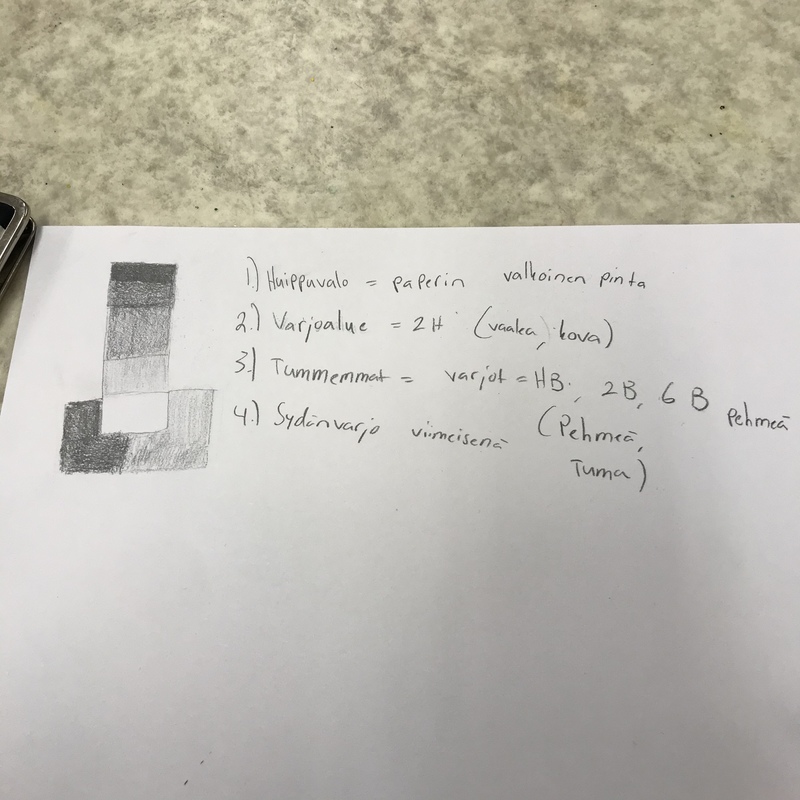 1.) Huippuvalo = paperin valkoinen pinta
2.) Varjoalue = 2H (vaaka, kova)
3.) Tummemmat = varjot = HB, 2B, 6B pehmeä
4.) Sydänvarjo viimeisenä (Pehmeä,
Tuma)